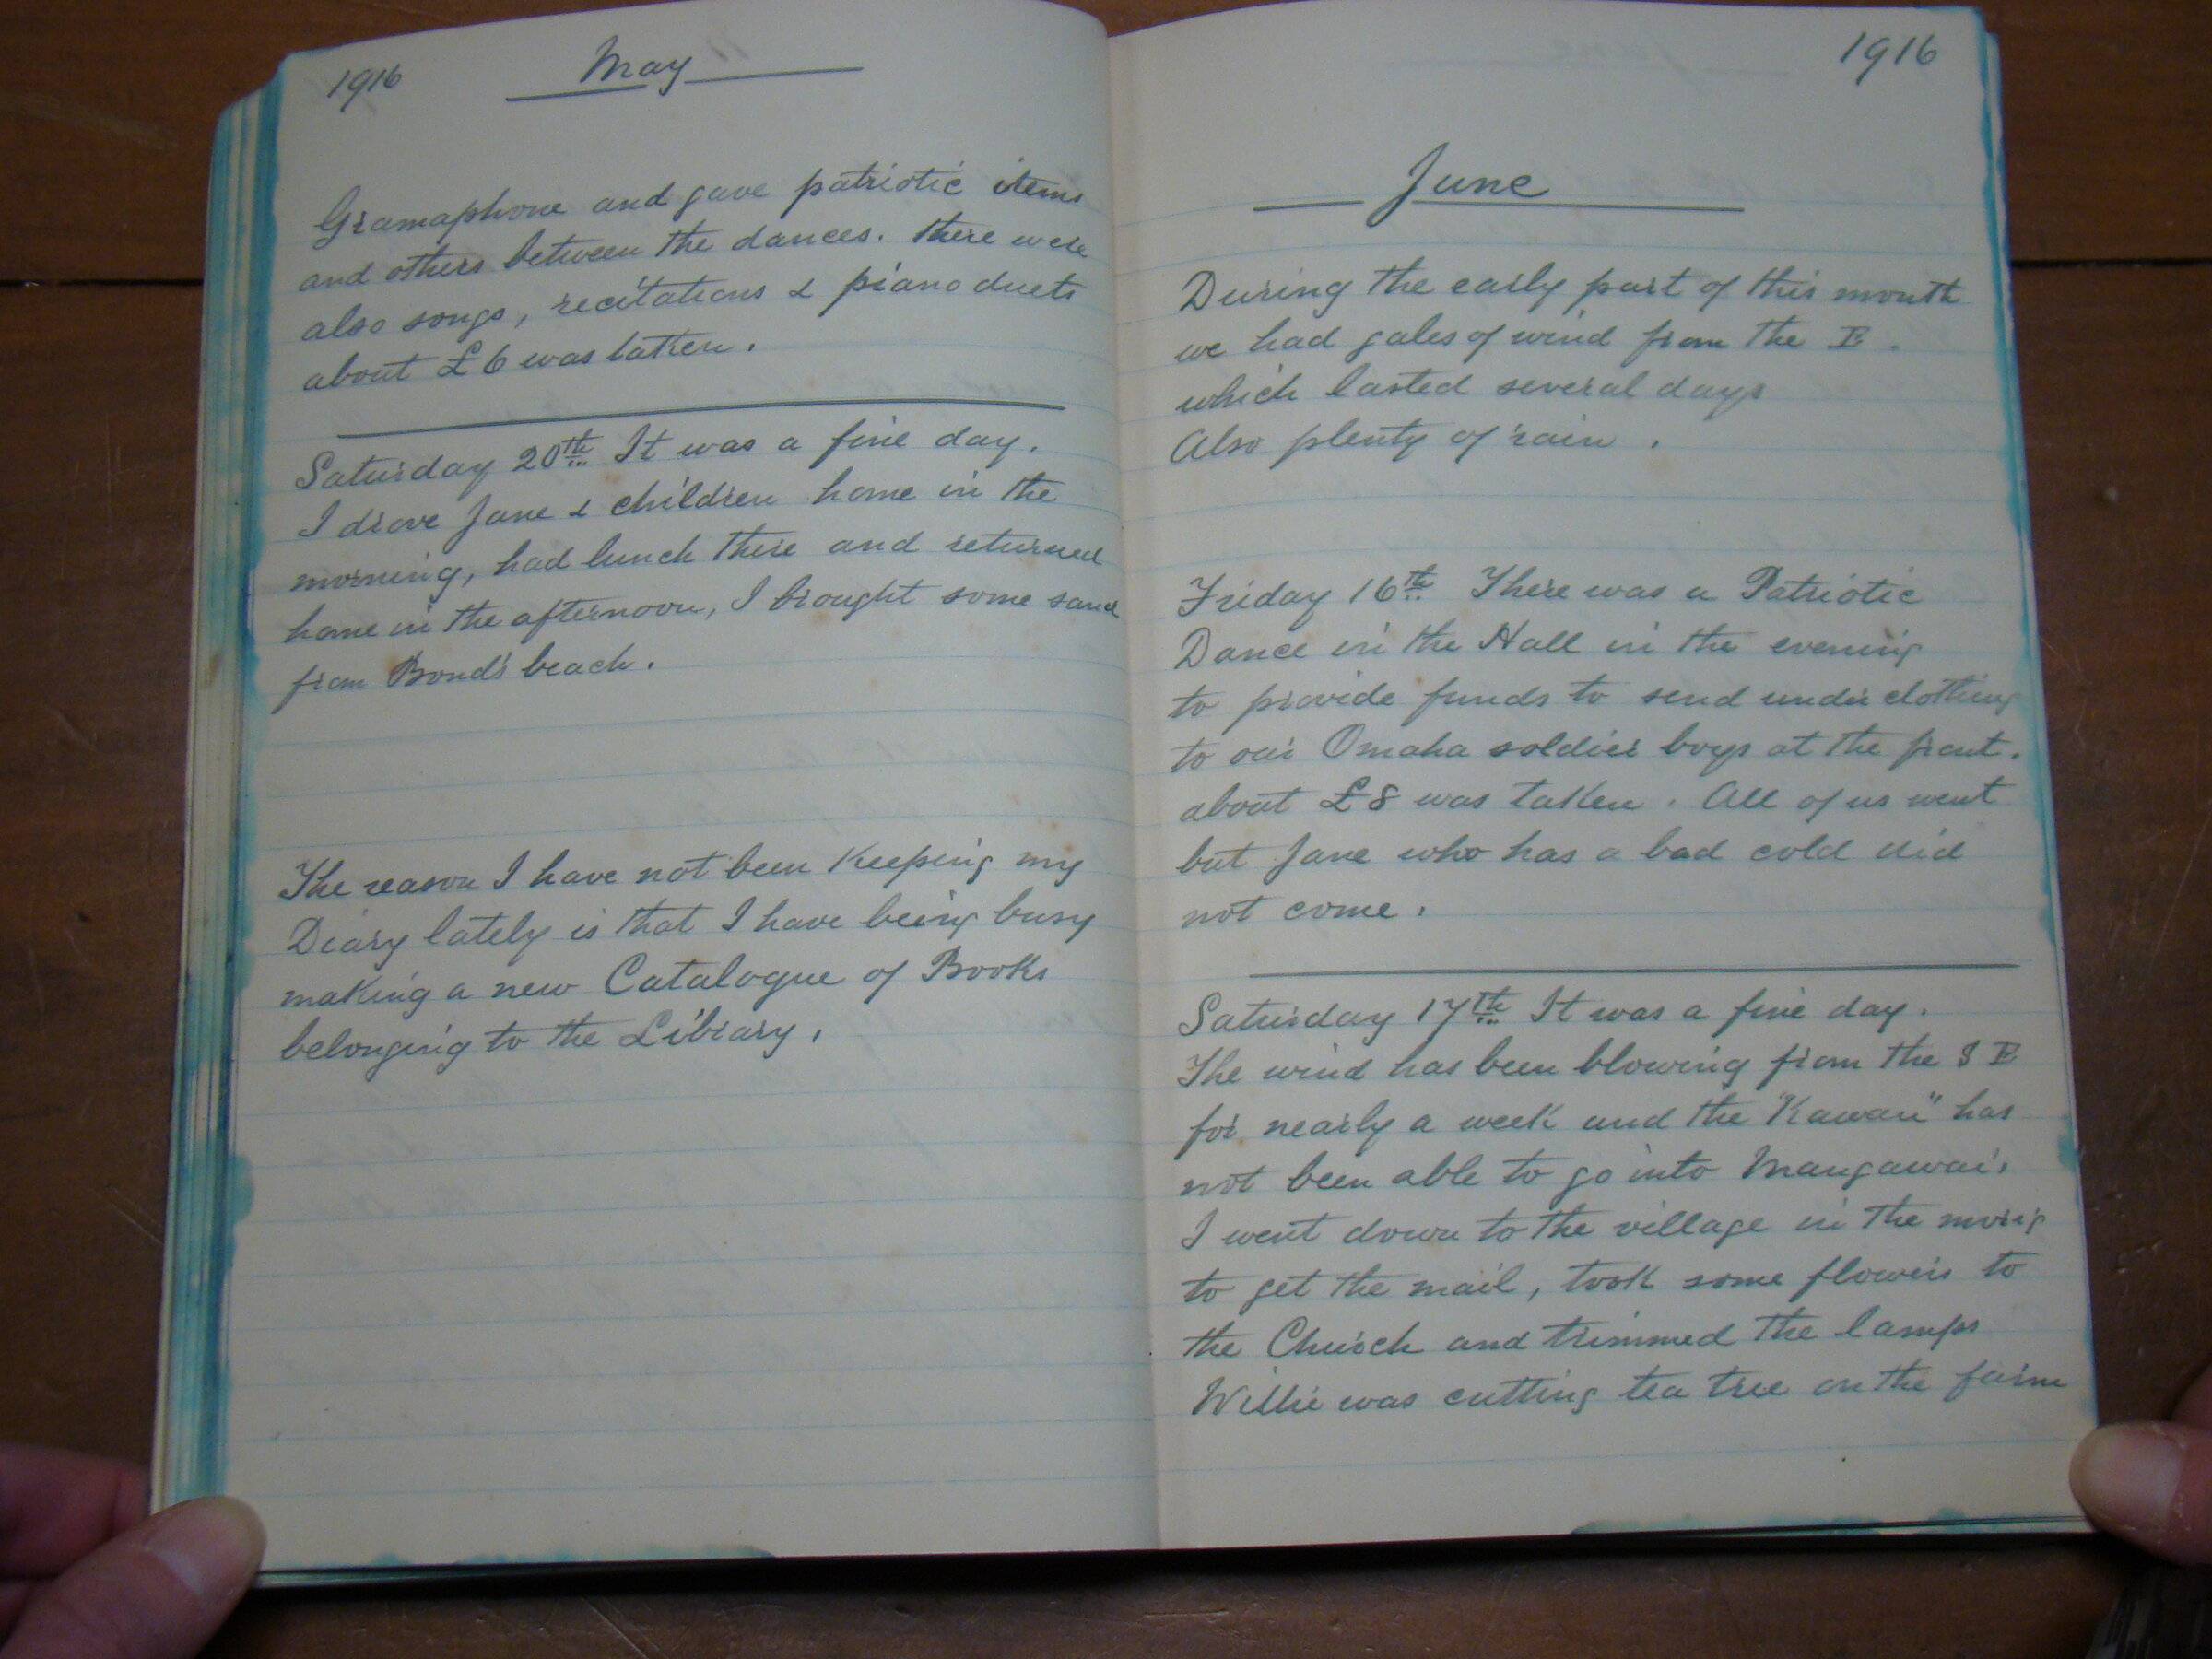 1916 May
Gramaphone and gave patriotic items
and others between the dances. There were
also songs, recitations & piano duets
about £6 was taken.
Saturday 20th It was a fine day.
I drove Jane & children home in the
morning, had lunch there and returned
home in the afternoon, I brought some sand
from Bond's beach.
The reason I have not been keeping my
Diary lately is that I have being busy
making a new Catalogue of Books
belonging to the Library.
1916
June
During the early part of this month
we had gales of wind from the E.
which lasted several days
Also plenty of rain.
Friday 16th There was a Patriotic
Dance in the Hall in the evening
to provide funds to send under clothing
to our Omaha soldier boys at the front.
about £8 was taken. All of us went
but Jane who has a bad cold did
not come.
Saturday 17th It was a fine day.
The wind has been blowing from the S E
for nearly a week and the "Kawau" has
not been able to go into Mangawai.
I went down to the village in the morig
to get the mail, took some flowers to
the Church and trimmed the lamps
Willie was cutting tea tree on the farm